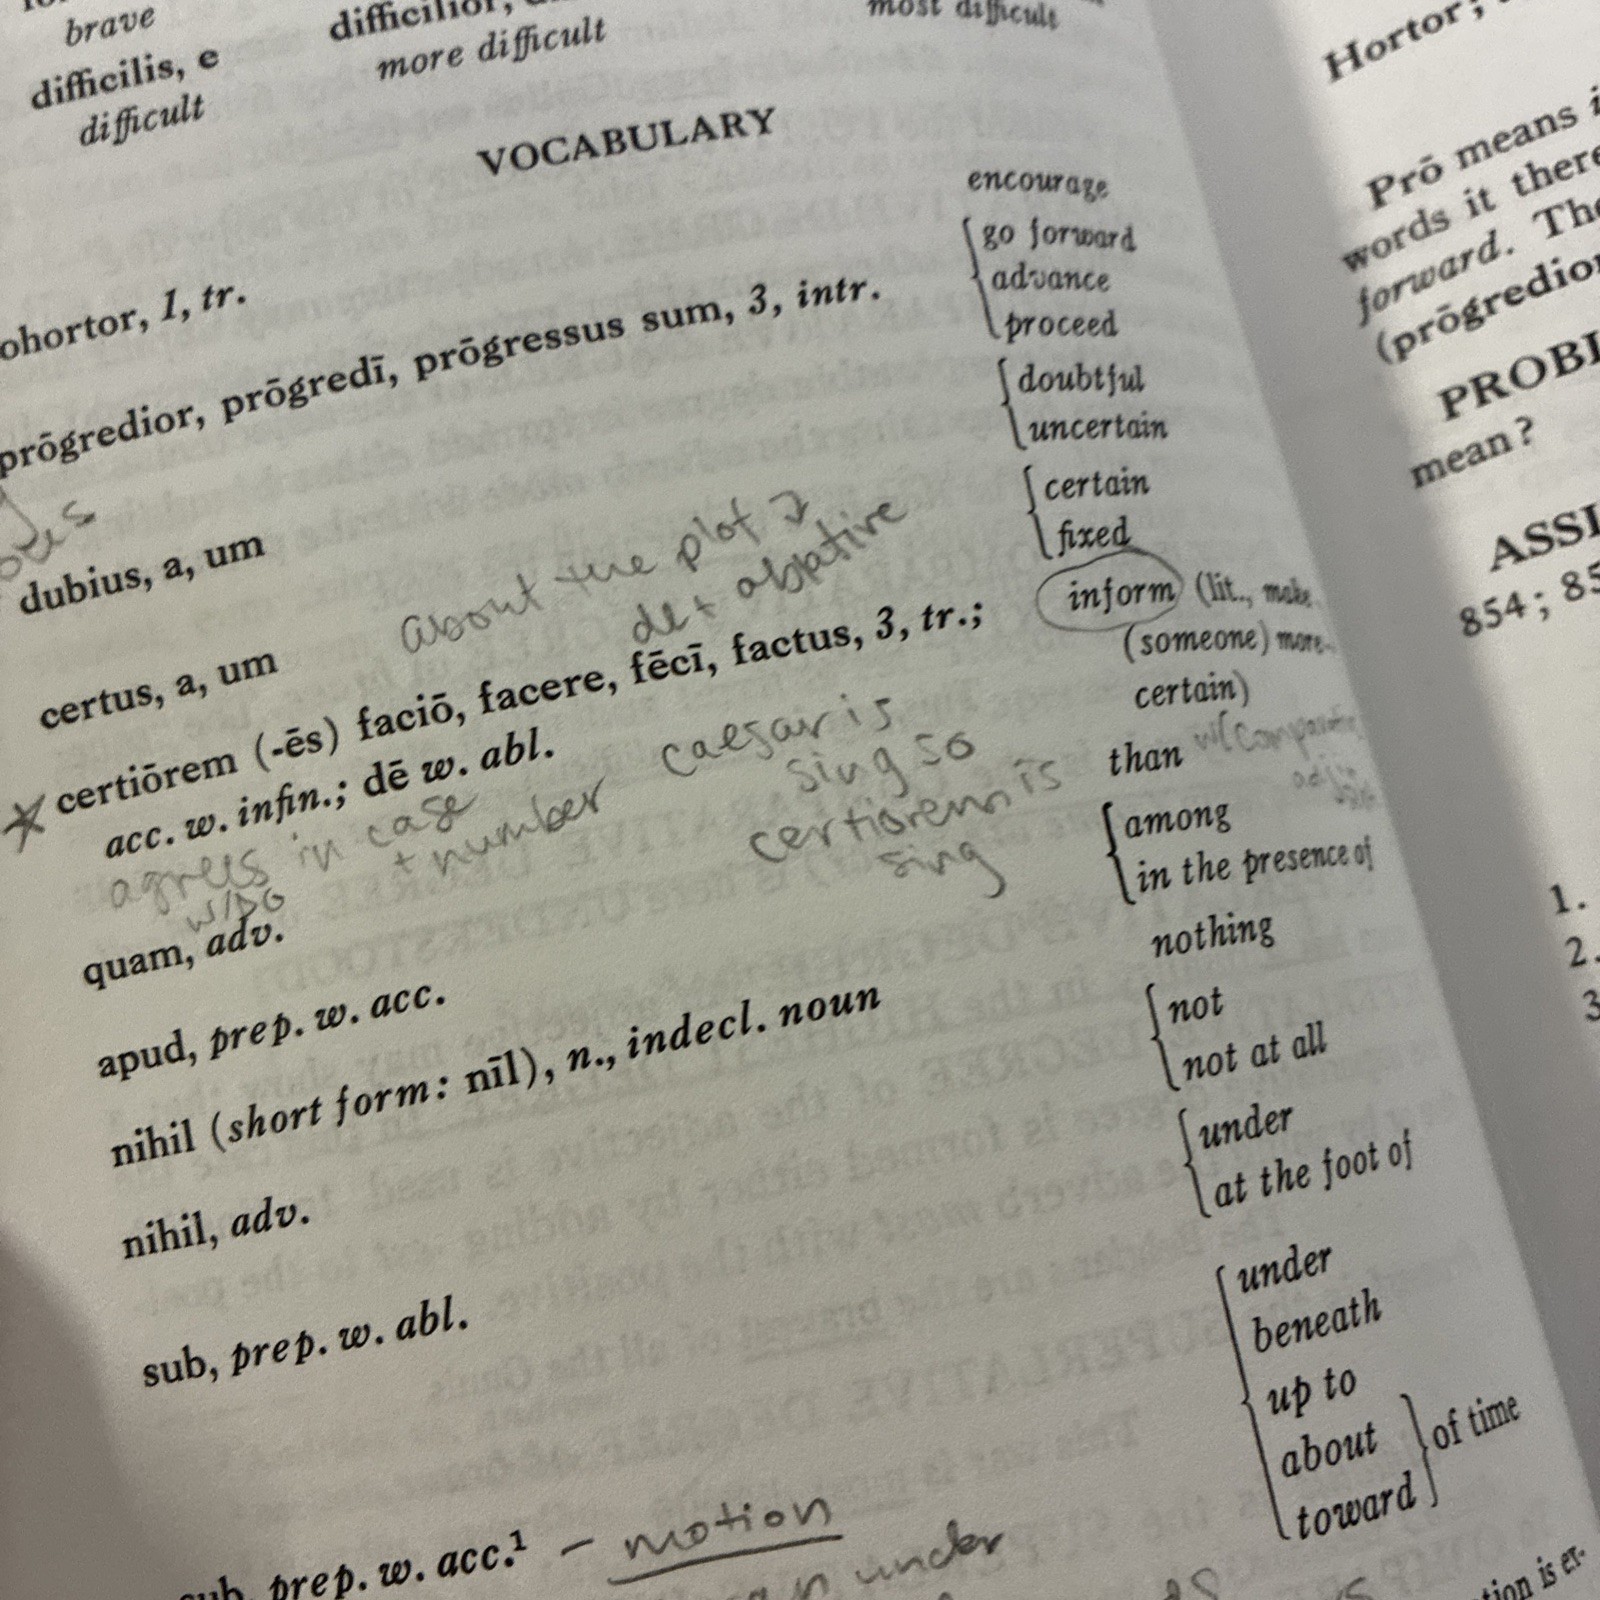 brave
difficilis, e
difficult
difficilior,
more difficult
most difficult
VOCABULARY
ohortor, 1, tr.
encourage
prōgredior, prōgredī, prōgressus sum, 3, intr.
go forward
advance
proceed
dubius, a, um
doubtful
uncertain
certus, a, um
certain
fixed
about the plot
de + ablative
certiōrem (-ēs) faciō, facere, fēcī, factus, 3, tr.;
acc. w. infin.; dē w. abl.
inform (lit., make
(someone) more
certain)
agrees in case
+ number
w/DO
caesar is
sing so
certiorem is
sing
quam, adv.
than w/(Comparative
apud, prep. w. acc.
among
in the presence of
nihil (short form: nīl), n., indecl. noun
nothing
nihil, adv.
not
not at all
sub, prep. w. abl.
under
at the foot of
sub, prep. w. acc.¹ – motion
under
under
beneath
up to
about
toward
of time
tion is er-
Hortor;
Prō means
words it there
forward. The
(prōgredior
PROBL
mean?
ASSI
854; 85
1.
2.
3